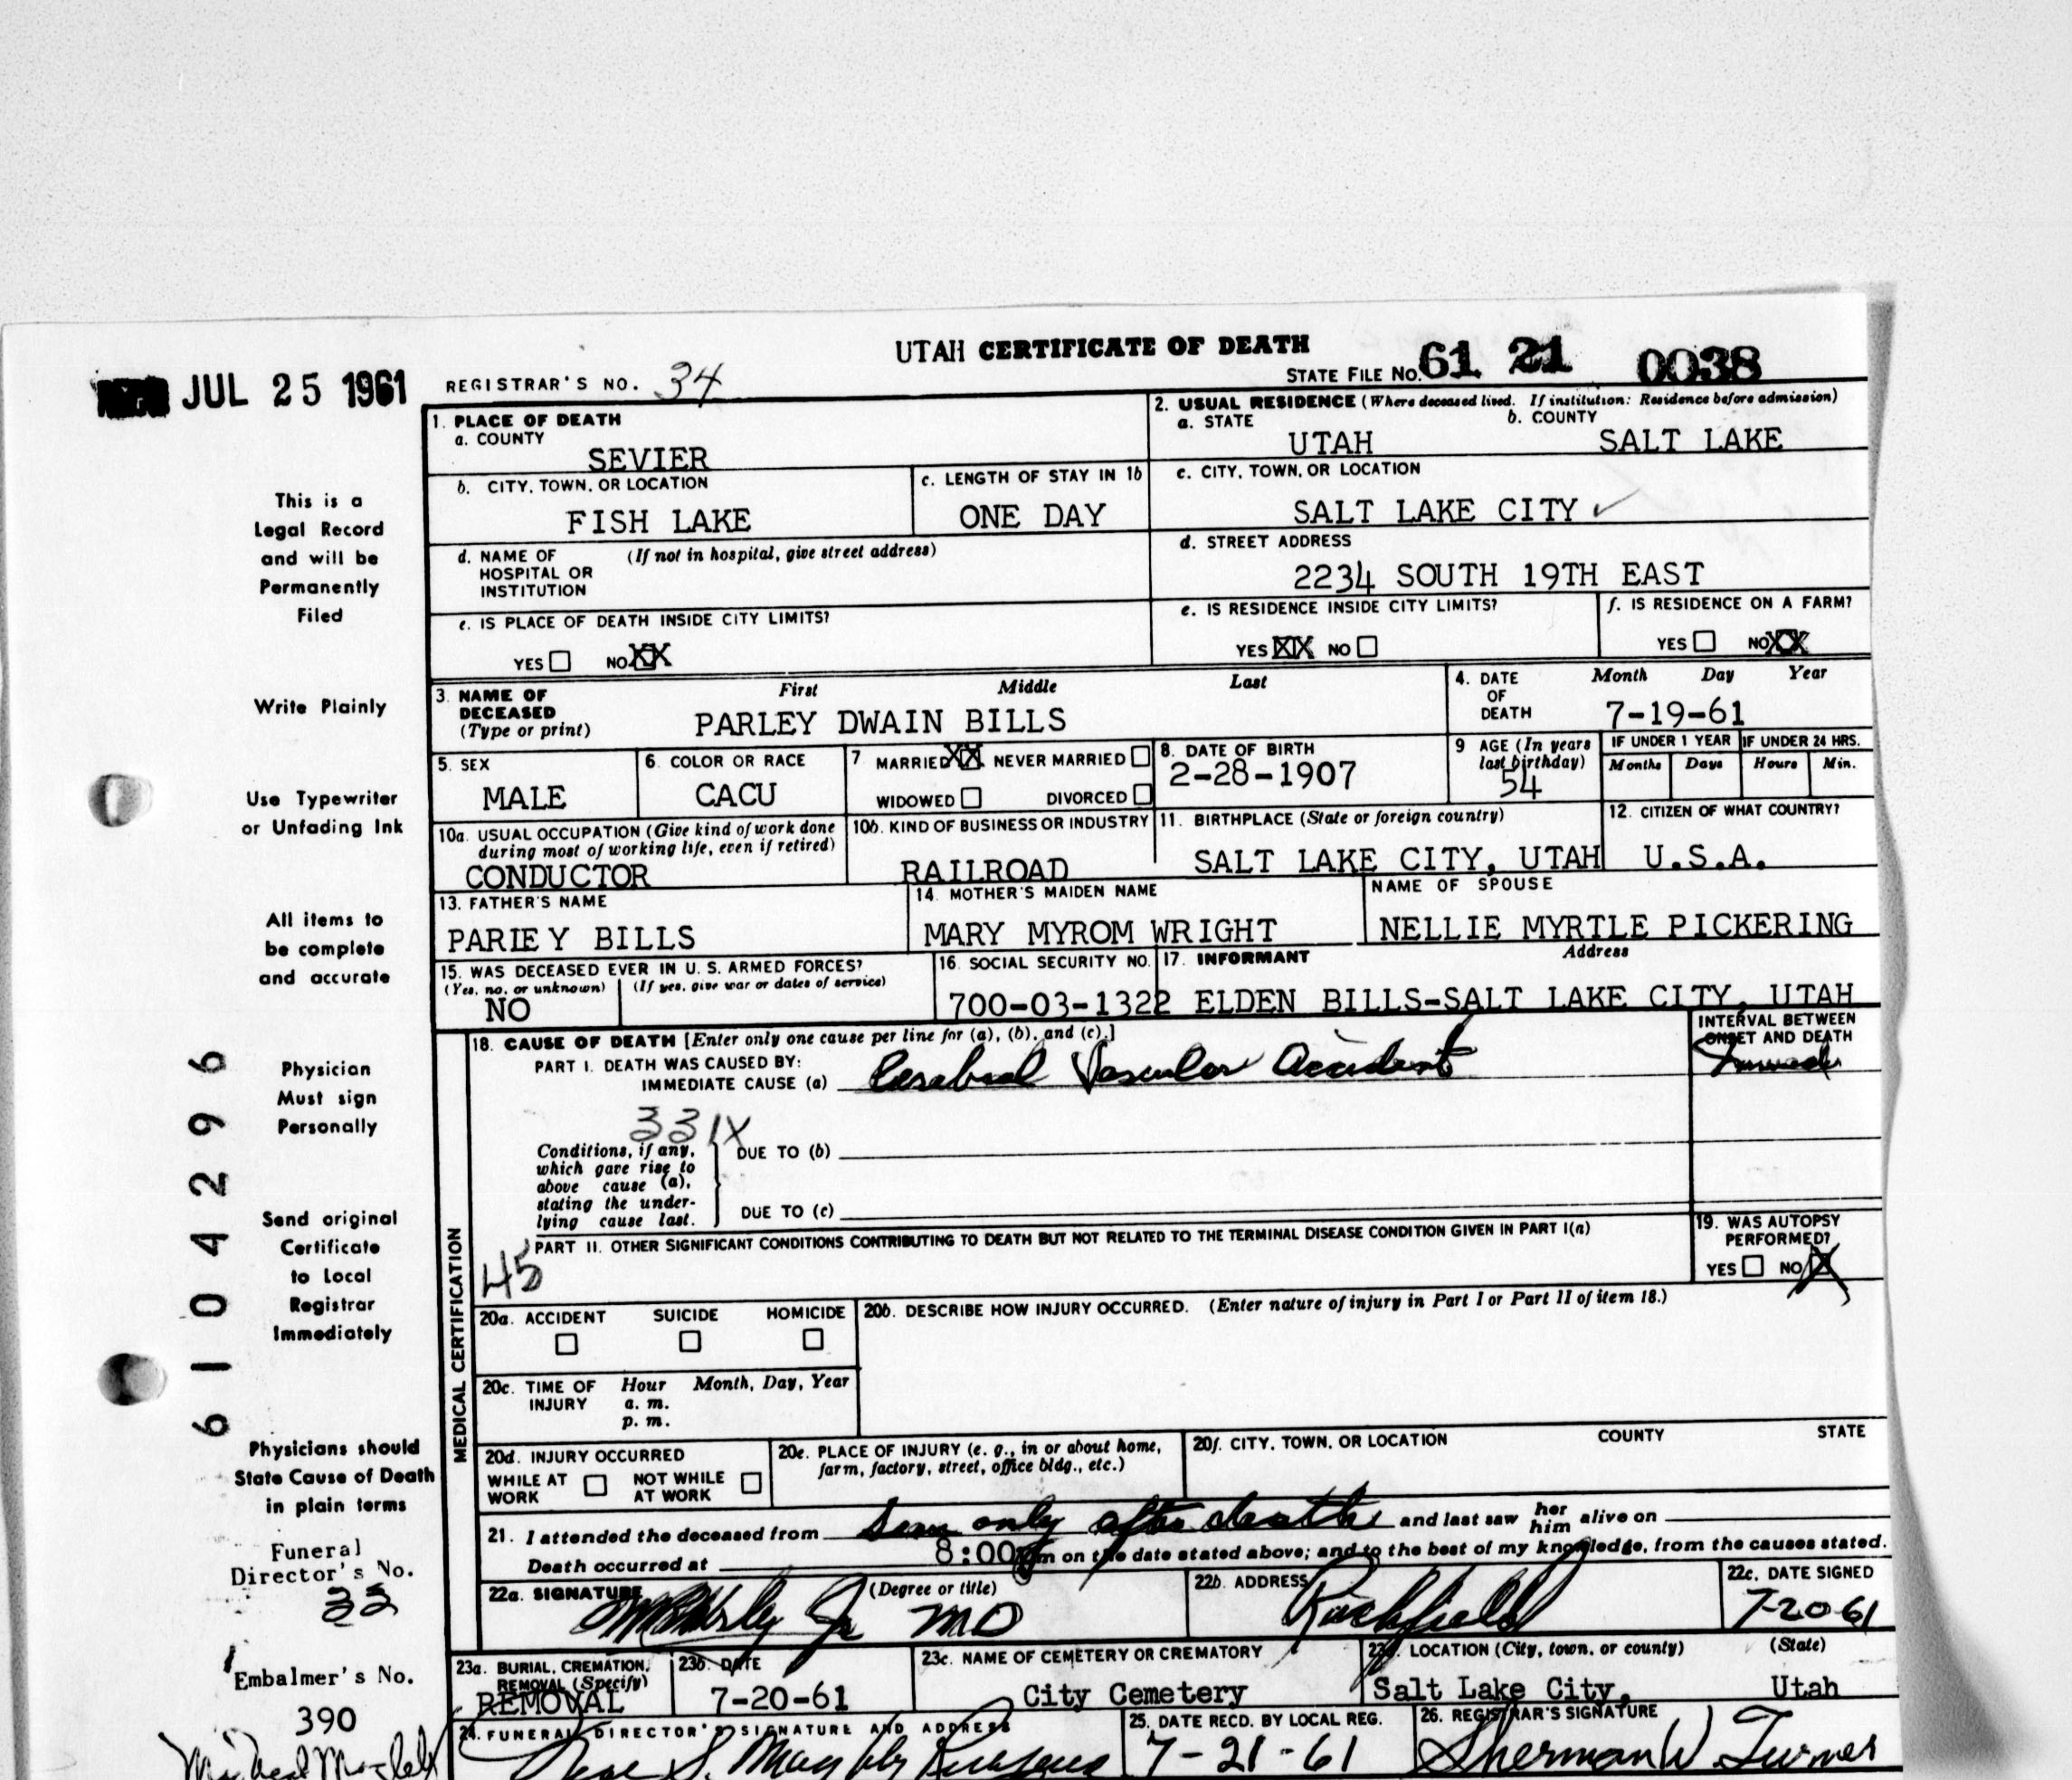 UTAH CERTIFICATE OF DEATH
JUL 25 1961
REGISTRAR'S NO. 34
STATE FILE NO. 61 21 0038
1. PLACE OF DEATH
a. COUNTY
SEVIER
2. USUAL RESIDENCE (Where deceased lived. If institution: Residence before admission)
a. STATE b. COUNTY
UTAH SALT LAKE
b. CITY, TOWN, OR LOCATION
FISH LAKE
c. LENGTH OF STAY IN 1b
ONE DAY
c. CITY, TOWN, OR LOCATION
SALT LAKE CITY ✓
d. NAME OF (If not in hospital, give street address)
HOSPITAL OR
INSTITUTION
d. STREET ADDRESS
2234 SOUTH 19TH EAST
e. IS PLACE OF DEATH INSIDE CITY LIMITS?
YES NO XX
e. IS RESIDENCE INSIDE CITY LIMITS?
YES XX NO
f. IS RESIDENCE ON A FARM?
YES NO XX
3. NAME OF First Middle Last
DECEASED
(Type or print)
PARLEY DWAIN BILLS
4. DATE Month Day Year
OF
DEATH
7-19-61
5. SEX
MALE
6. COLOR OR RACE
CACU
7. MARRIED XX NEVER MARRIED
WIDOWED DIVORCED
8. DATE OF BIRTH
2-28-1907
9 AGE (In years
last birthday)
54
IF UNDER 1 YEAR IF UNDER 24 HRS.
Months Days Hours Min.
10a. USUAL OCCUPATION (Give kind of work done
during most of working life, even if retired)
CONDUCTOR
10b. KIND OF BUSINESS OR INDUSTRY
RAILROAD
11. BIRTHPLACE (State or foreign country)
SALT LAKE CITY, UTAH
12. CITIZEN OF WHAT COUNTRY?
U.S.A.
13. FATHER'S NAME
PARIEY BILLS
14. MOTHER'S MAIDEN NAME
MARY MYROM WRIGHT
NAME OF SPOUSE
NELLIE MYRTLE PICKERING
15. WAS DECEASED EVER IN U. S. ARMED FORCES?
(Yes, no, or unknown) (If yes, give war or dates of service)
NO
16. SOCIAL SECURITY NO.
700-03-1322
17. INFORMANT Address
ELDEN BILLS-SALT LAKE CITY, UTAH
18. CAUSE OF DEATH [Enter only one cause per line for (a), (b), and (c).]
PART I. DEATH WAS CAUSED BY:
IMMEDIATE CAUSE (a) Cerebral Vascular Accident
INTERVAL BETWEEN
ONSET AND DEATH
331X
Conditions, if any,
which gave rise to
above cause (a),
stating the under-
lying cause last.
DUE TO (b)
DUE TO (c)
PART II. OTHER SIGNIFICANT CONDITIONS CONTRIBUTING TO DEATH BUT NOT RELATED TO THE TERMINAL DISEASE CONDITION GIVEN IN PART I(a)
45
19. WAS AUTOPSY
PERFORMED?
YES NO X
MEDICAL CERTIFICATION
20a. ACCIDENT SUICIDE HOMICIDE
20b. DESCRIBE HOW INJURY OCCURRED. (Enter nature of injury in Part I or Part II of item 18.)
20c. TIME OF Hour Month, Day, Year
INJURY a. m.
p. m.
20d. INJURY OCCURRED
WHILE AT WORK NOT WHILE AT WORK
20e. PLACE OF INJURY (e. g., in or about home,
farm, factory, street, office bldg., etc.)
20f. CITY, TOWN, OR LOCATION COUNTY STATE
21. I attended the deceased from seen only after death and last saw her him alive on
Death occurred at 8:00 m on the date stated above; and to the best of my knowledge, from the causes stated.
22a. SIGNATURE (Degree or title)
Jr MD
22b. ADDRESS
Richfield
22c. DATE SIGNED
7-20-61
23a. BURIAL, CREMATION,
REMOVAL (Specify)
REMOVAL
23b. DATE
7-20-61
23c. NAME OF CEMETERY OR CREMATORY
City Cemetery
23d. LOCATION (City, town, or county) (State)
Salt Lake City, Utah
24. FUNERAL DIRECTOR'S SIGNATURE AND ADDRESS
25. DATE RECD. BY LOCAL REG.
7-21-61
26. REGISTRAR'S SIGNATURE
Sherman W. Turner
This is a
Legal Record
and will be
Permanently
Filed
Write Plainly
Use Typewriter
or Unfading Ink
All items to
be complete
and accurate
Physician
Must sign
Personally
Send original
Certificate
to Local
Registrar
Immediately
Physicians should
State Cause of Death
in plain terms
Funeral
Director's No.
33
Embalmer's No.
390
61 04296